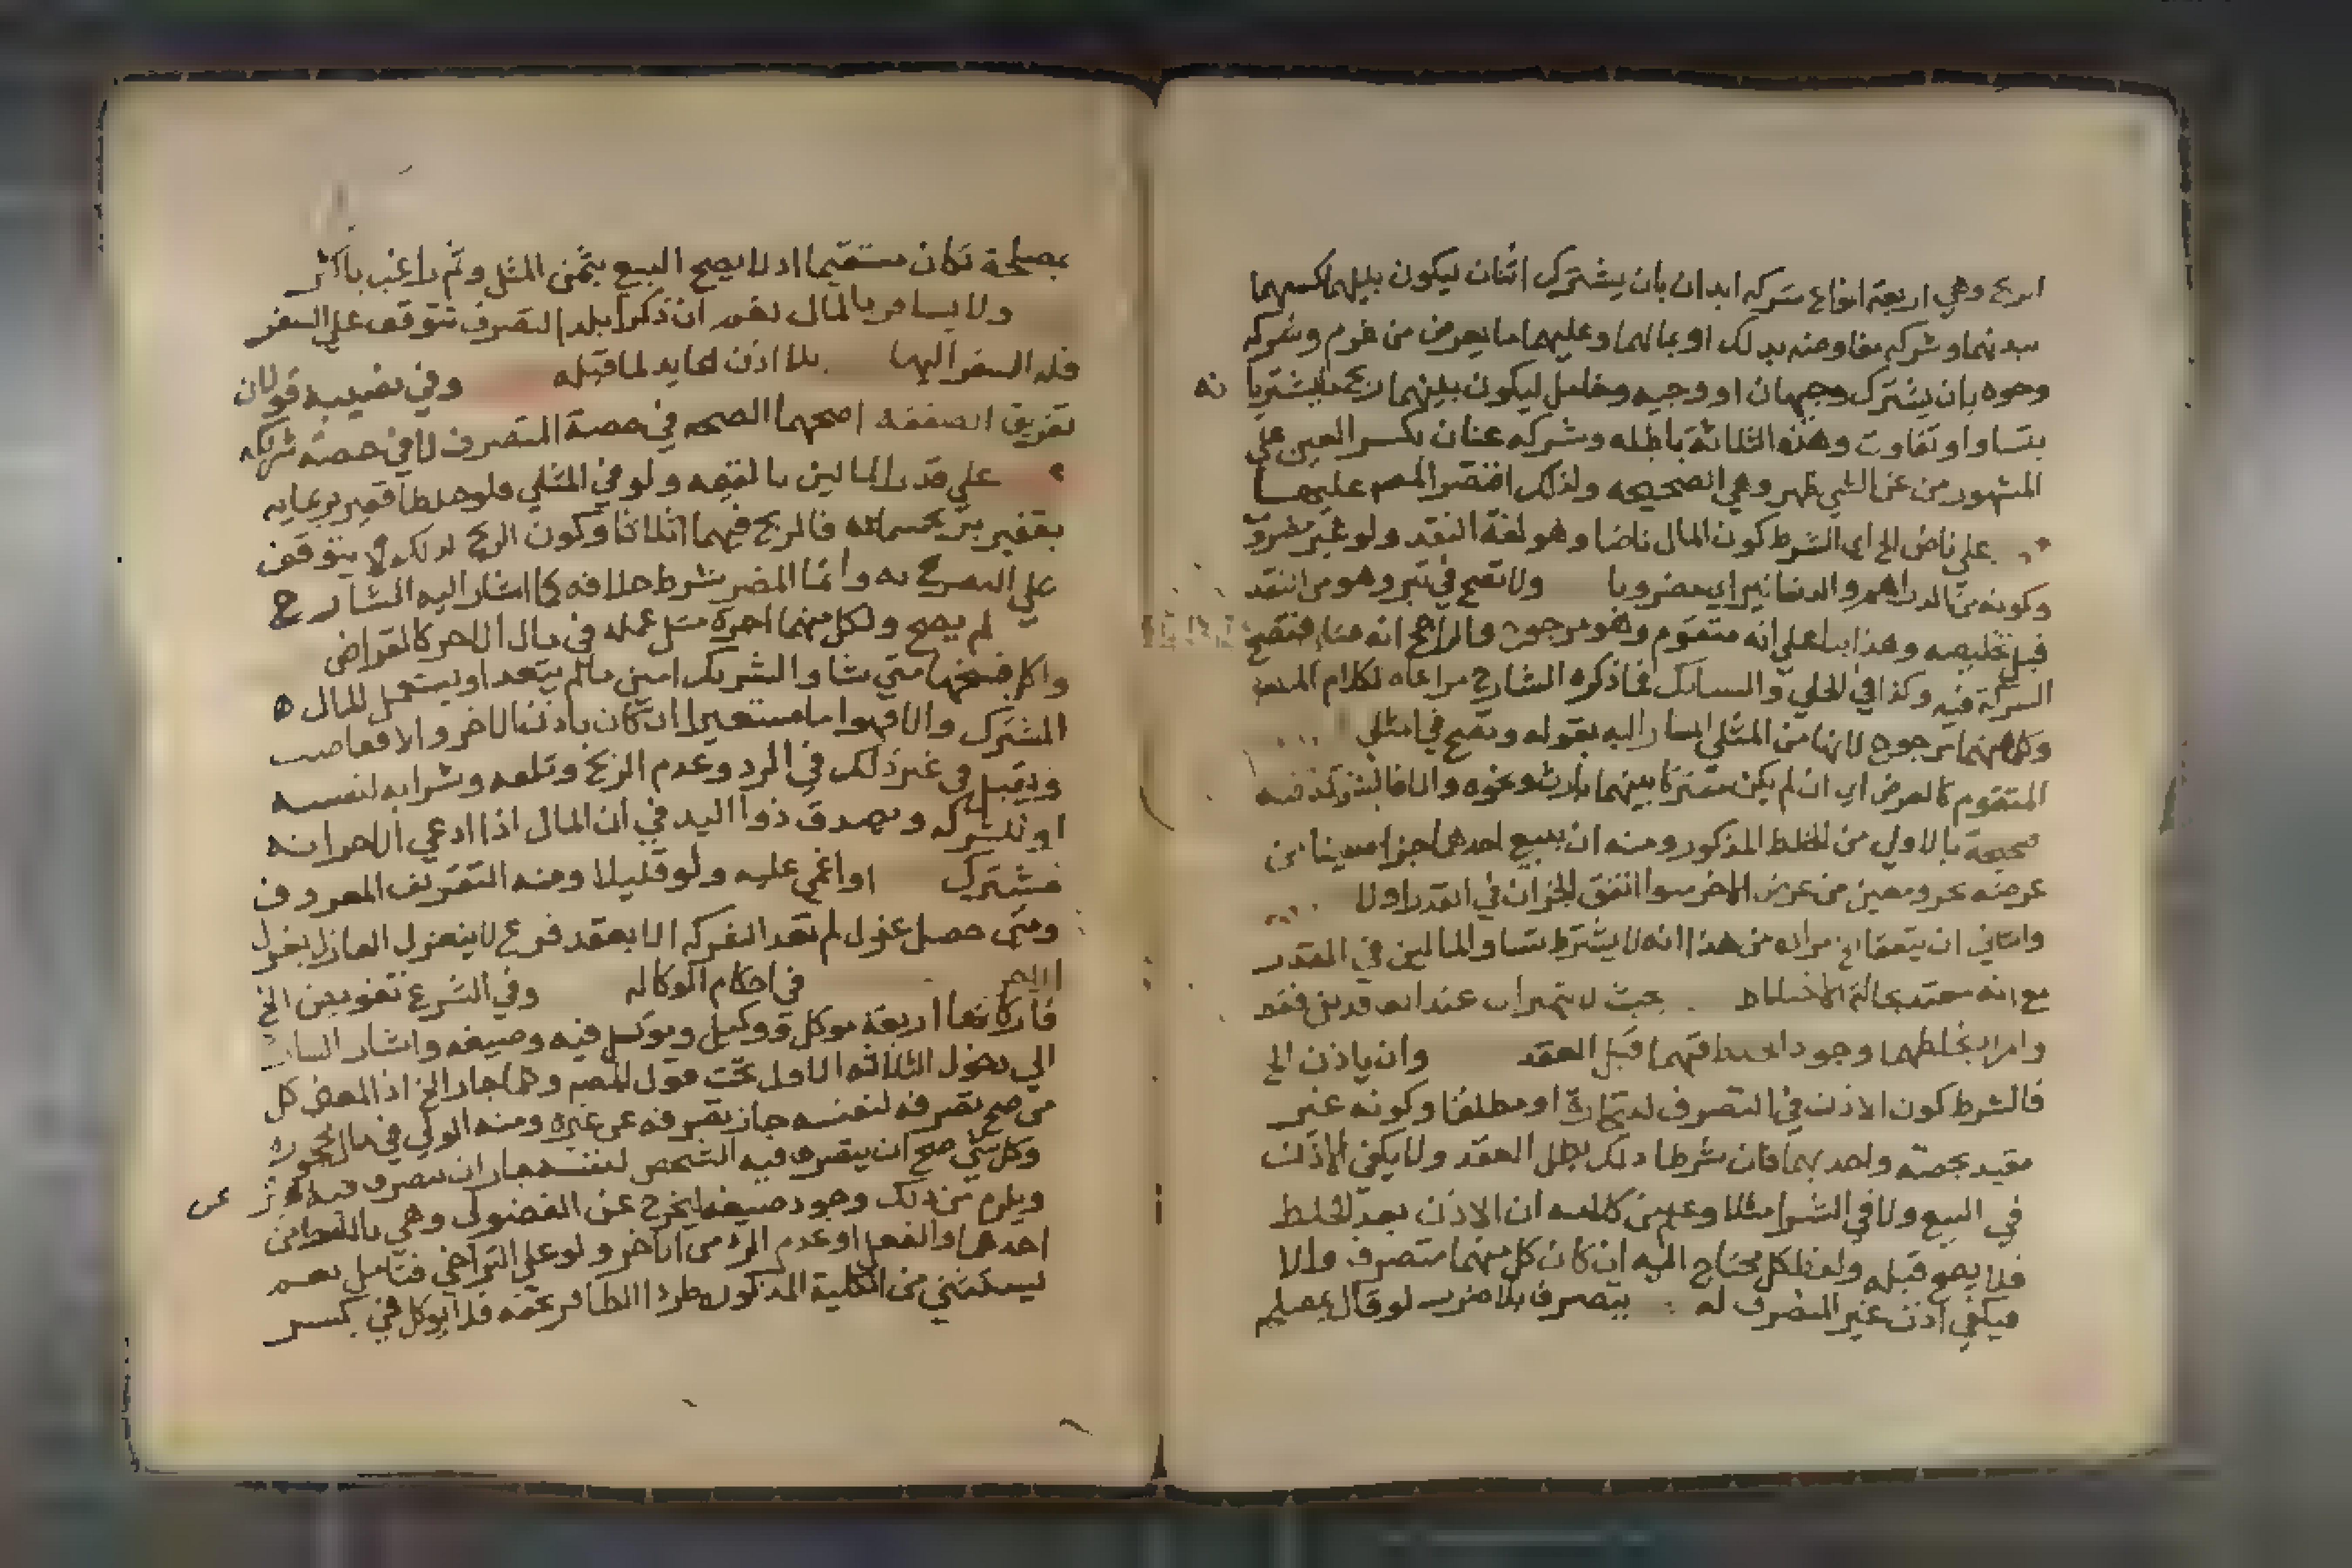 اربع وهي اربعة انواع شركه ابدان بان يشترك اثنان ليكون بينهما كسبهما
ببدنهما وشركه مفاوضه بذلك او بمالهما وعليهما ما يعرض من غرم وشركه
وجوه بان يشترك وجيهان او وجيه وخامل ليكون بينهما ربح ما يشتريا نه
بتساو او تفاوت وهذه الثلاثة باطله وشركه عنان بكسر العين على
المشهور من عن الشي ظهر وهي الصحيحه ولذلك اقتصر المصم عليها
على ناض الخ اي الشرط كون المال ناضا وهو لغة النقد ولو غير مضروب
وكونه من الدراهم والدنانير اي مضروبا ولا تصح في تبر وهو من النقد
قبل تخليصه وهذا بنا على انه متقوم وهو مرجوح والراجح انه مثلي فتصح
الشركة فيه وكذا في الحلي والسبائك فما ذكره الشارح مراعاه لكلام المصم
وكل منهما مرجوح لانها من المثلي المشار اليه بقوله وتصح في المثلي
المتقوم كالعرض اي ان لم يكن مشتركا بينهما بارث ونحوه والا فالشركة فيه
صحيحة بالاولى من الخلط المذكور ومنه ان يبيع احدهما جزا معينا من
عرضه بجزو معين من عرض الاخر سوا اتفق الجزان في القدر او لا
والثاني ان يتفقا الخ مراده من هذا انه لا يشترط تساو المالين في القدر
مع انه معتبر بحالة الاختلاط بحيث لا يتميزان عند العاقدين فقط
وامرا بخلطهما وجود الخلط فيهما قبل العقد وان ياذن الخ
فالشرط كون الاذن في التصرف لتجارة او مطلقا وكونه غير
مقيد بحصته واحد بهما فان شرطا ذلك بطل العقد ولا يكفي الاذن
في البيع ولا في الشرا مثلا وعلم من كلامه ان الاذن بعد الخلط
فلا يصح قبله ولفظ كل محتاج اليه ان كان كل منهما متصرف والا
فيكفي اذن غير المتصرف له يتصرف بلا ضرر لو قال بمصلحه
بمصلحة لكان مستقيما اذ لا يصح البيع بثمن المثل وثم راغب باكثر
ولا يسافر بالمال نعم ان ذكرا بلدا التصرف تتوقف على السفر
فله السفر اليها بلا اذن عايد لما قبله وفي نصيبه قولان
تفريق الصفقه اصحهما الصحه في حصة المتصرف لا في حصة شريكه
على قدر المالين بالقيمه ولو في المثلي ولو خلطا قفيز بر بمايه
بقفيز بر بخمسمائه فالربح فيهما اثلاثا وكون الربح لذلك لا يتوقف
على التصريح به وانما المضر شرط خلافه كما اشار اليه الشارح
لم يصح ولكل منهما اجرة مثل عمله في مال الاخر كالقراض
ولكل فسخها متى شا والشريك امين ما لم يتعد او يستعمل المال
المشترك والا فهو اما مستعير ان كان باذن الاخر والا فغاصب
ويقبل في غير ذلك في الرد وعدم الربح وتلفه وشرايه لنفسه
او للشركه ويصدق ذو اليد في ان المال اذا ادعى الاخر انه
مشترك او اغمي عليه ولو قليلا ومنه التقريف المعروف
ومتى حصل عزل لم تعد الشركه الا بعقد فرع لا ينعزل العازل بعزل
الاخر في احكام الوكاله وفي الشرع تفويض الخ
فاركانها اربعة موكل ووكيل وموكل فيه وصيغه واشار الشارح
الى دخول الثلاثه الاول تحت قول المصم وكلما جاز الخ اذ المعنى كل
من صح تصرفه لنفسه جاز تصرفه عن غيره ومنه الولي في مال محجوره
وكل شي صح ان يتصرف فيه الشخص لنفسه جاز ان يتصرف فيه عن
ويلزم من ذلك وجود صيغه ليخرج عن الفضولي وهي باللفظ من
احدهما والفعل او عدم الرد من الاخر ولو على التراخي فتامل نعم
يستثنى من الكلية المذكوره طردا الظافر بحقه فلا يوكل في كسر